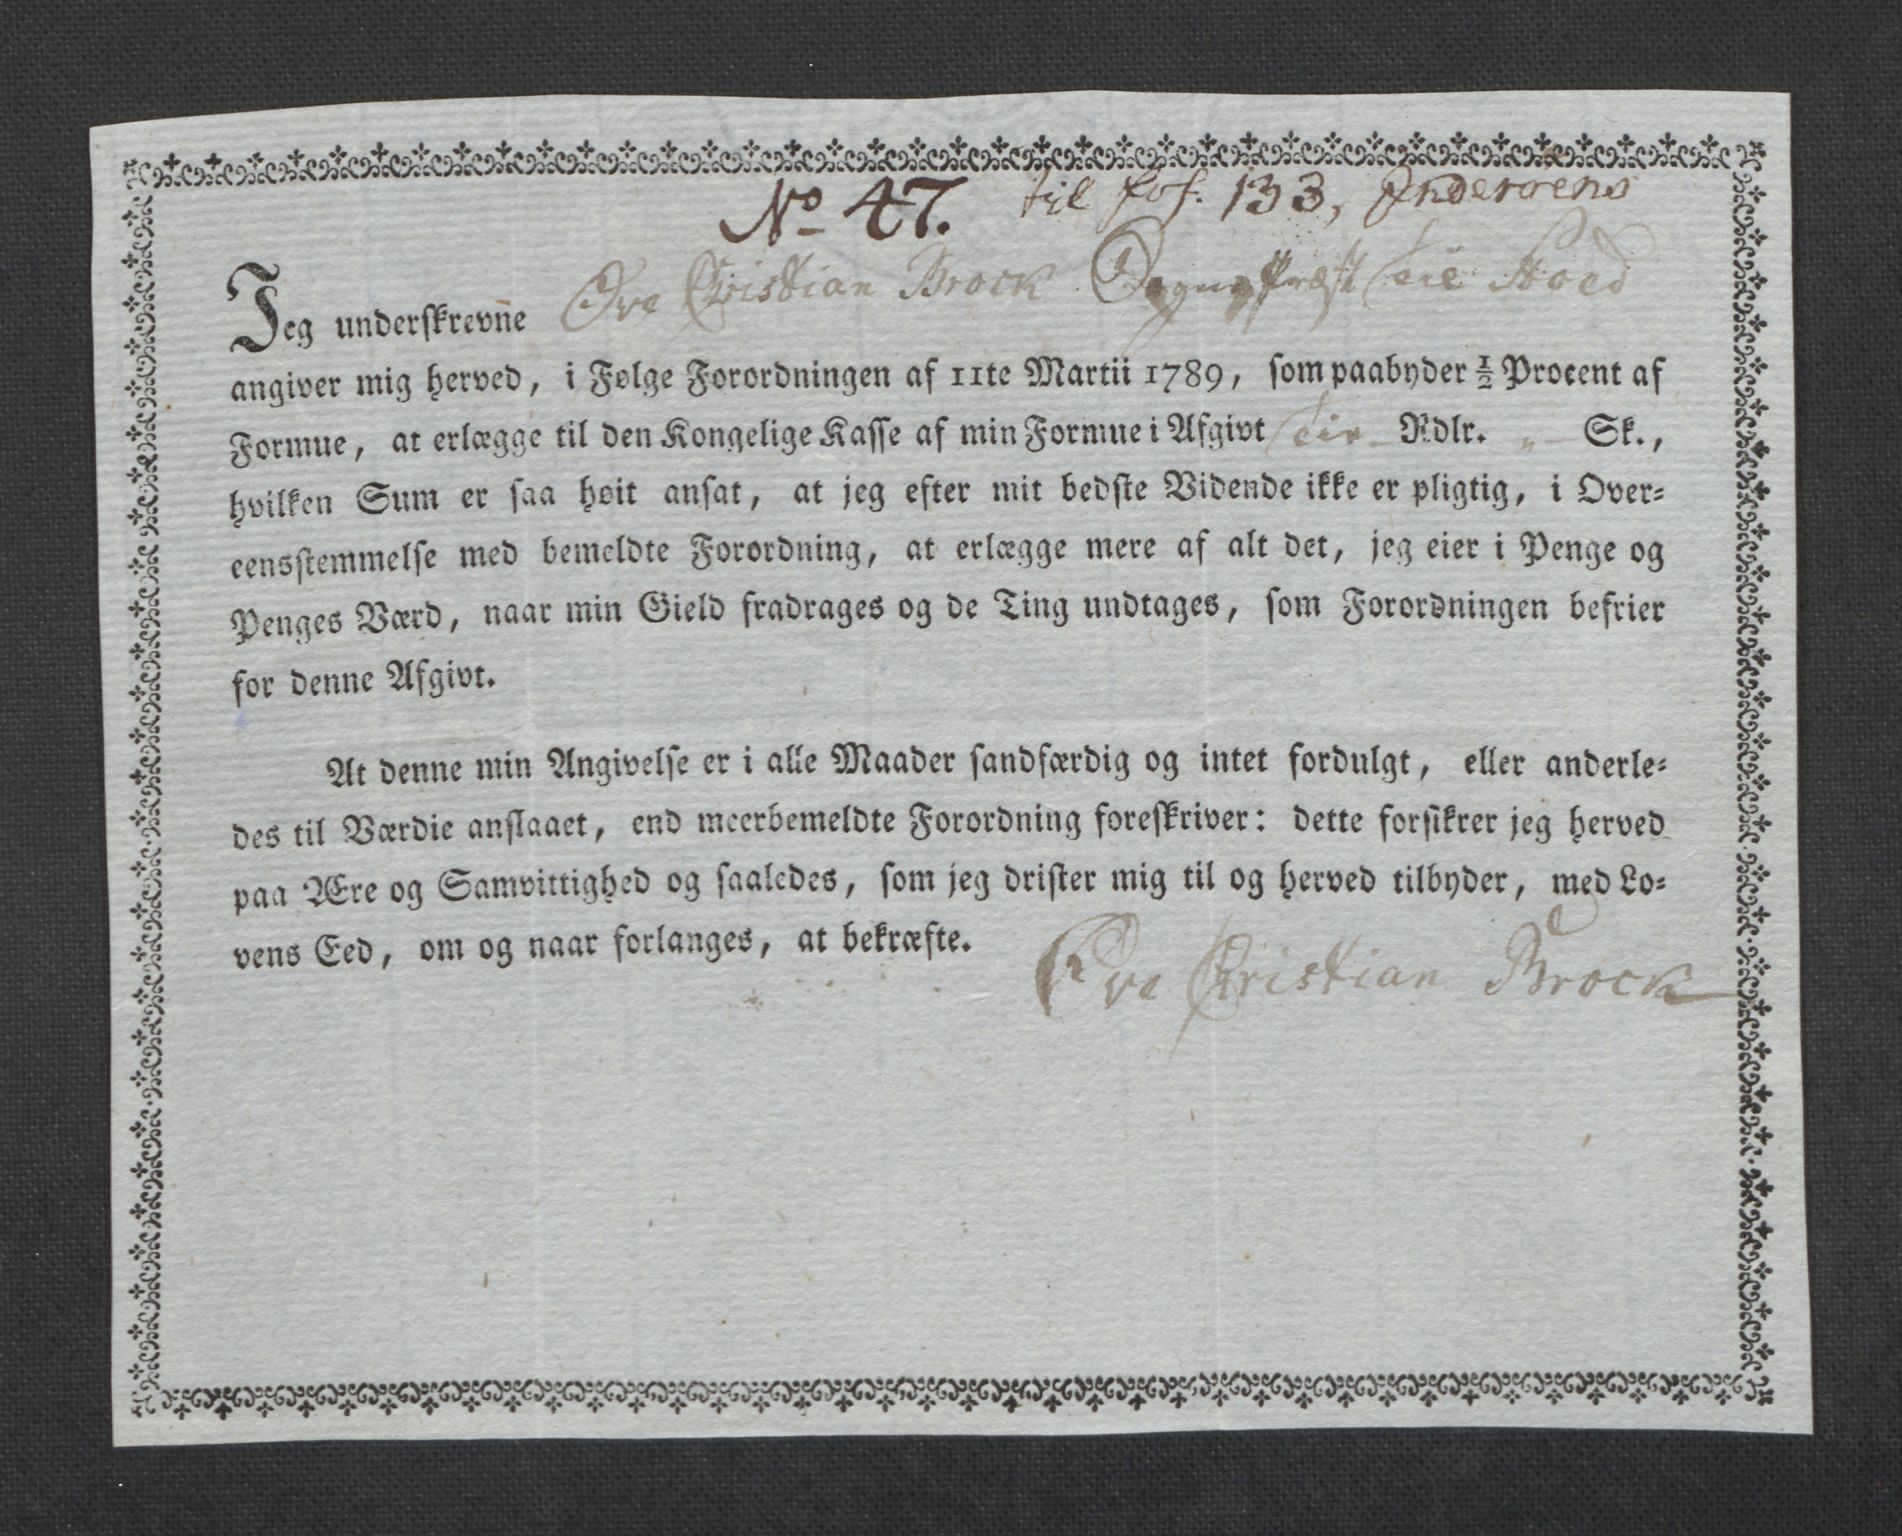 No 47. til fol. 133,
Jeg underskrevne Ove Christian Brock Sogne Præst til
angiver mig herved, i Følge Forordningen af 11te Martii 1789, som paabyder ½ Procent af
Formue, at erlægge til den Kongelige Kasse af min Formue i Afgivt Rdlr. " Sk.,
hvilken Sum er saa høit ansat, at jeg efter mit bedste Vidende ikke er pligtig, i Over-
eensstemmelse med bemeldte Forordning, at erlægge mere af alt det, jeg eier i Penge og
Penges Værd, naar min Gield fradrages og de Ting undtages, som Forordningen befrier
for denne Afgivt.
At denne min Angivelse er i alle Maader sandfærdig og intet fordulgt, eller anderle-
des til Værdie anslaaet, end meerbemeldte Forordning foreskriver: dette forsikrer jeg herved
paa Ære og Samvittighed og saaledes, som jeg drister mig til og herved tilbyder, med Lo-
vens Eed, om og naar forlanges, at bekræfte.
Ove Christian Brock